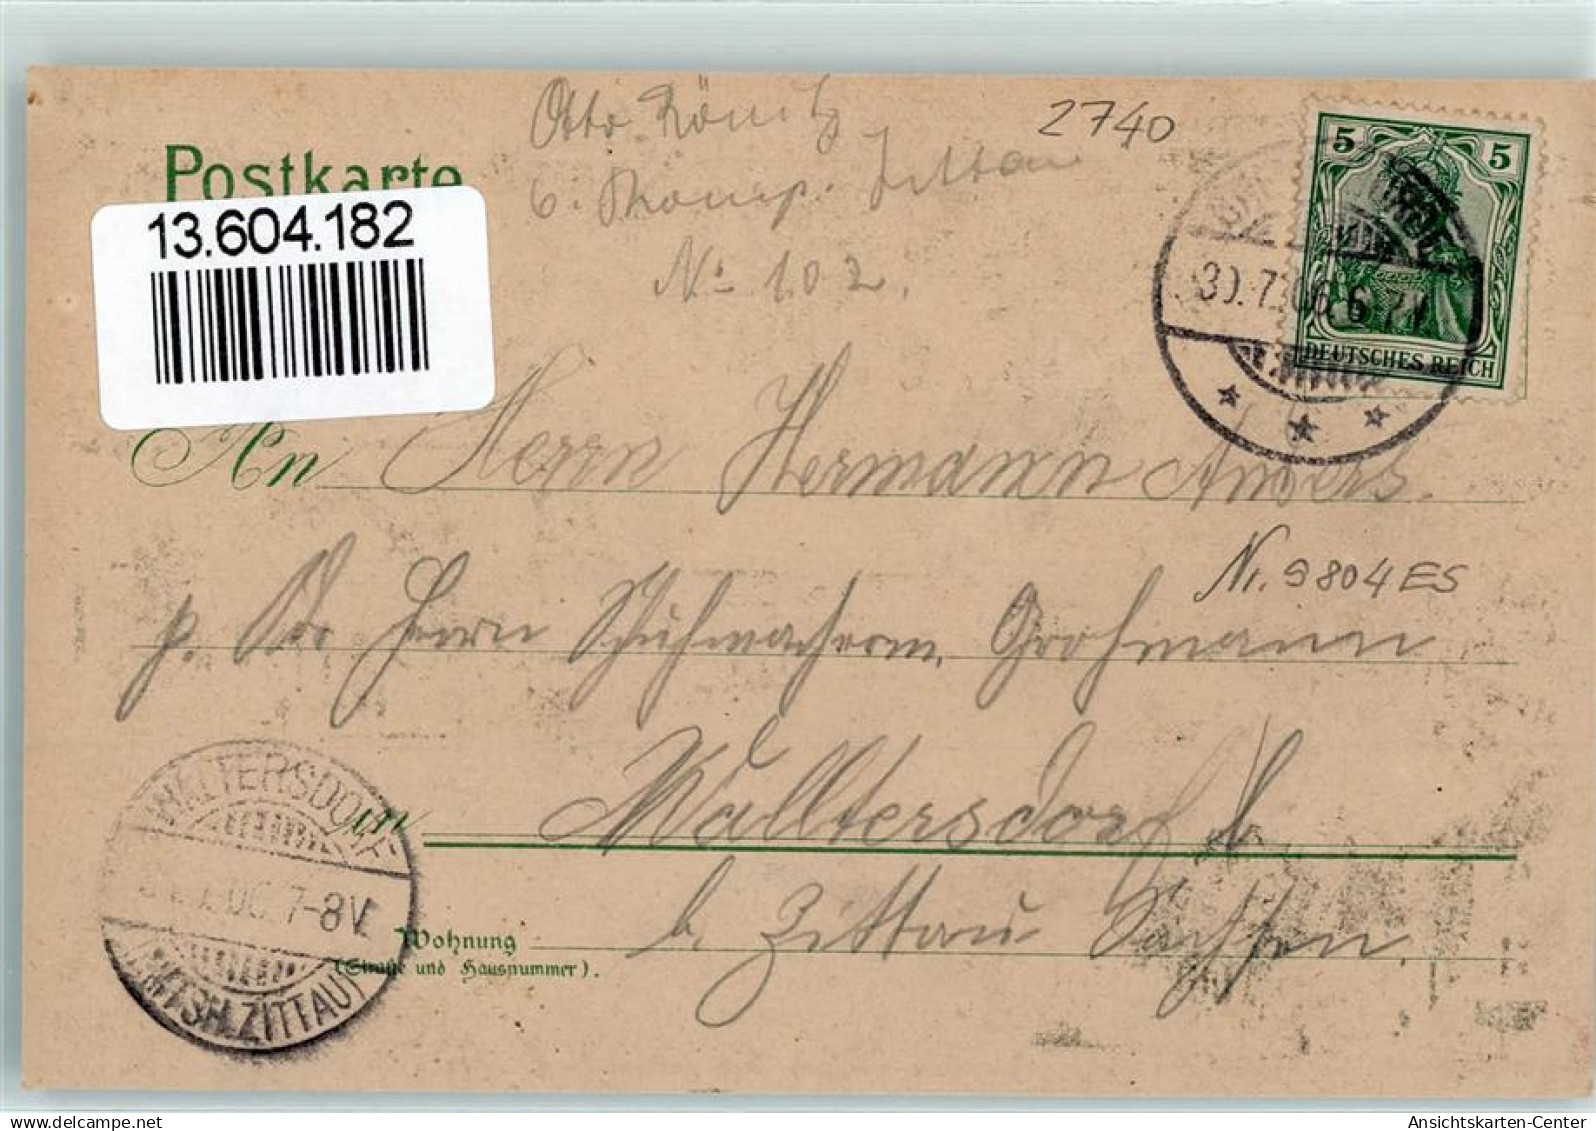 Otto Könitz
6. Komp. Zittau
No 102.
2740
Postkarte
13.604.182
5 5
DEUTSCHES REICH
30.7.06. 6-7 N
An Herrn Hermann Anders.
Nr. 9804 ES
p. Adr Herrn Schuhmacherm. Grohmann
in Walltersdorf
b. Zittau Sachsen.
Wohnung
(Straße und Hausnummer).
WALTERSDORF
06. 7-8V.
(AMTSH. ZITTAU)
delcampe.net
Ansichtskarten-Center